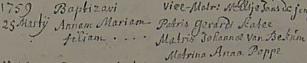 1759 Baptizavi Vice-Matre
25 Martij Annam Mariam Petris Gerardi Katee
filiam .... Matris Johannae van Bekum
Matrina Anna Poppe